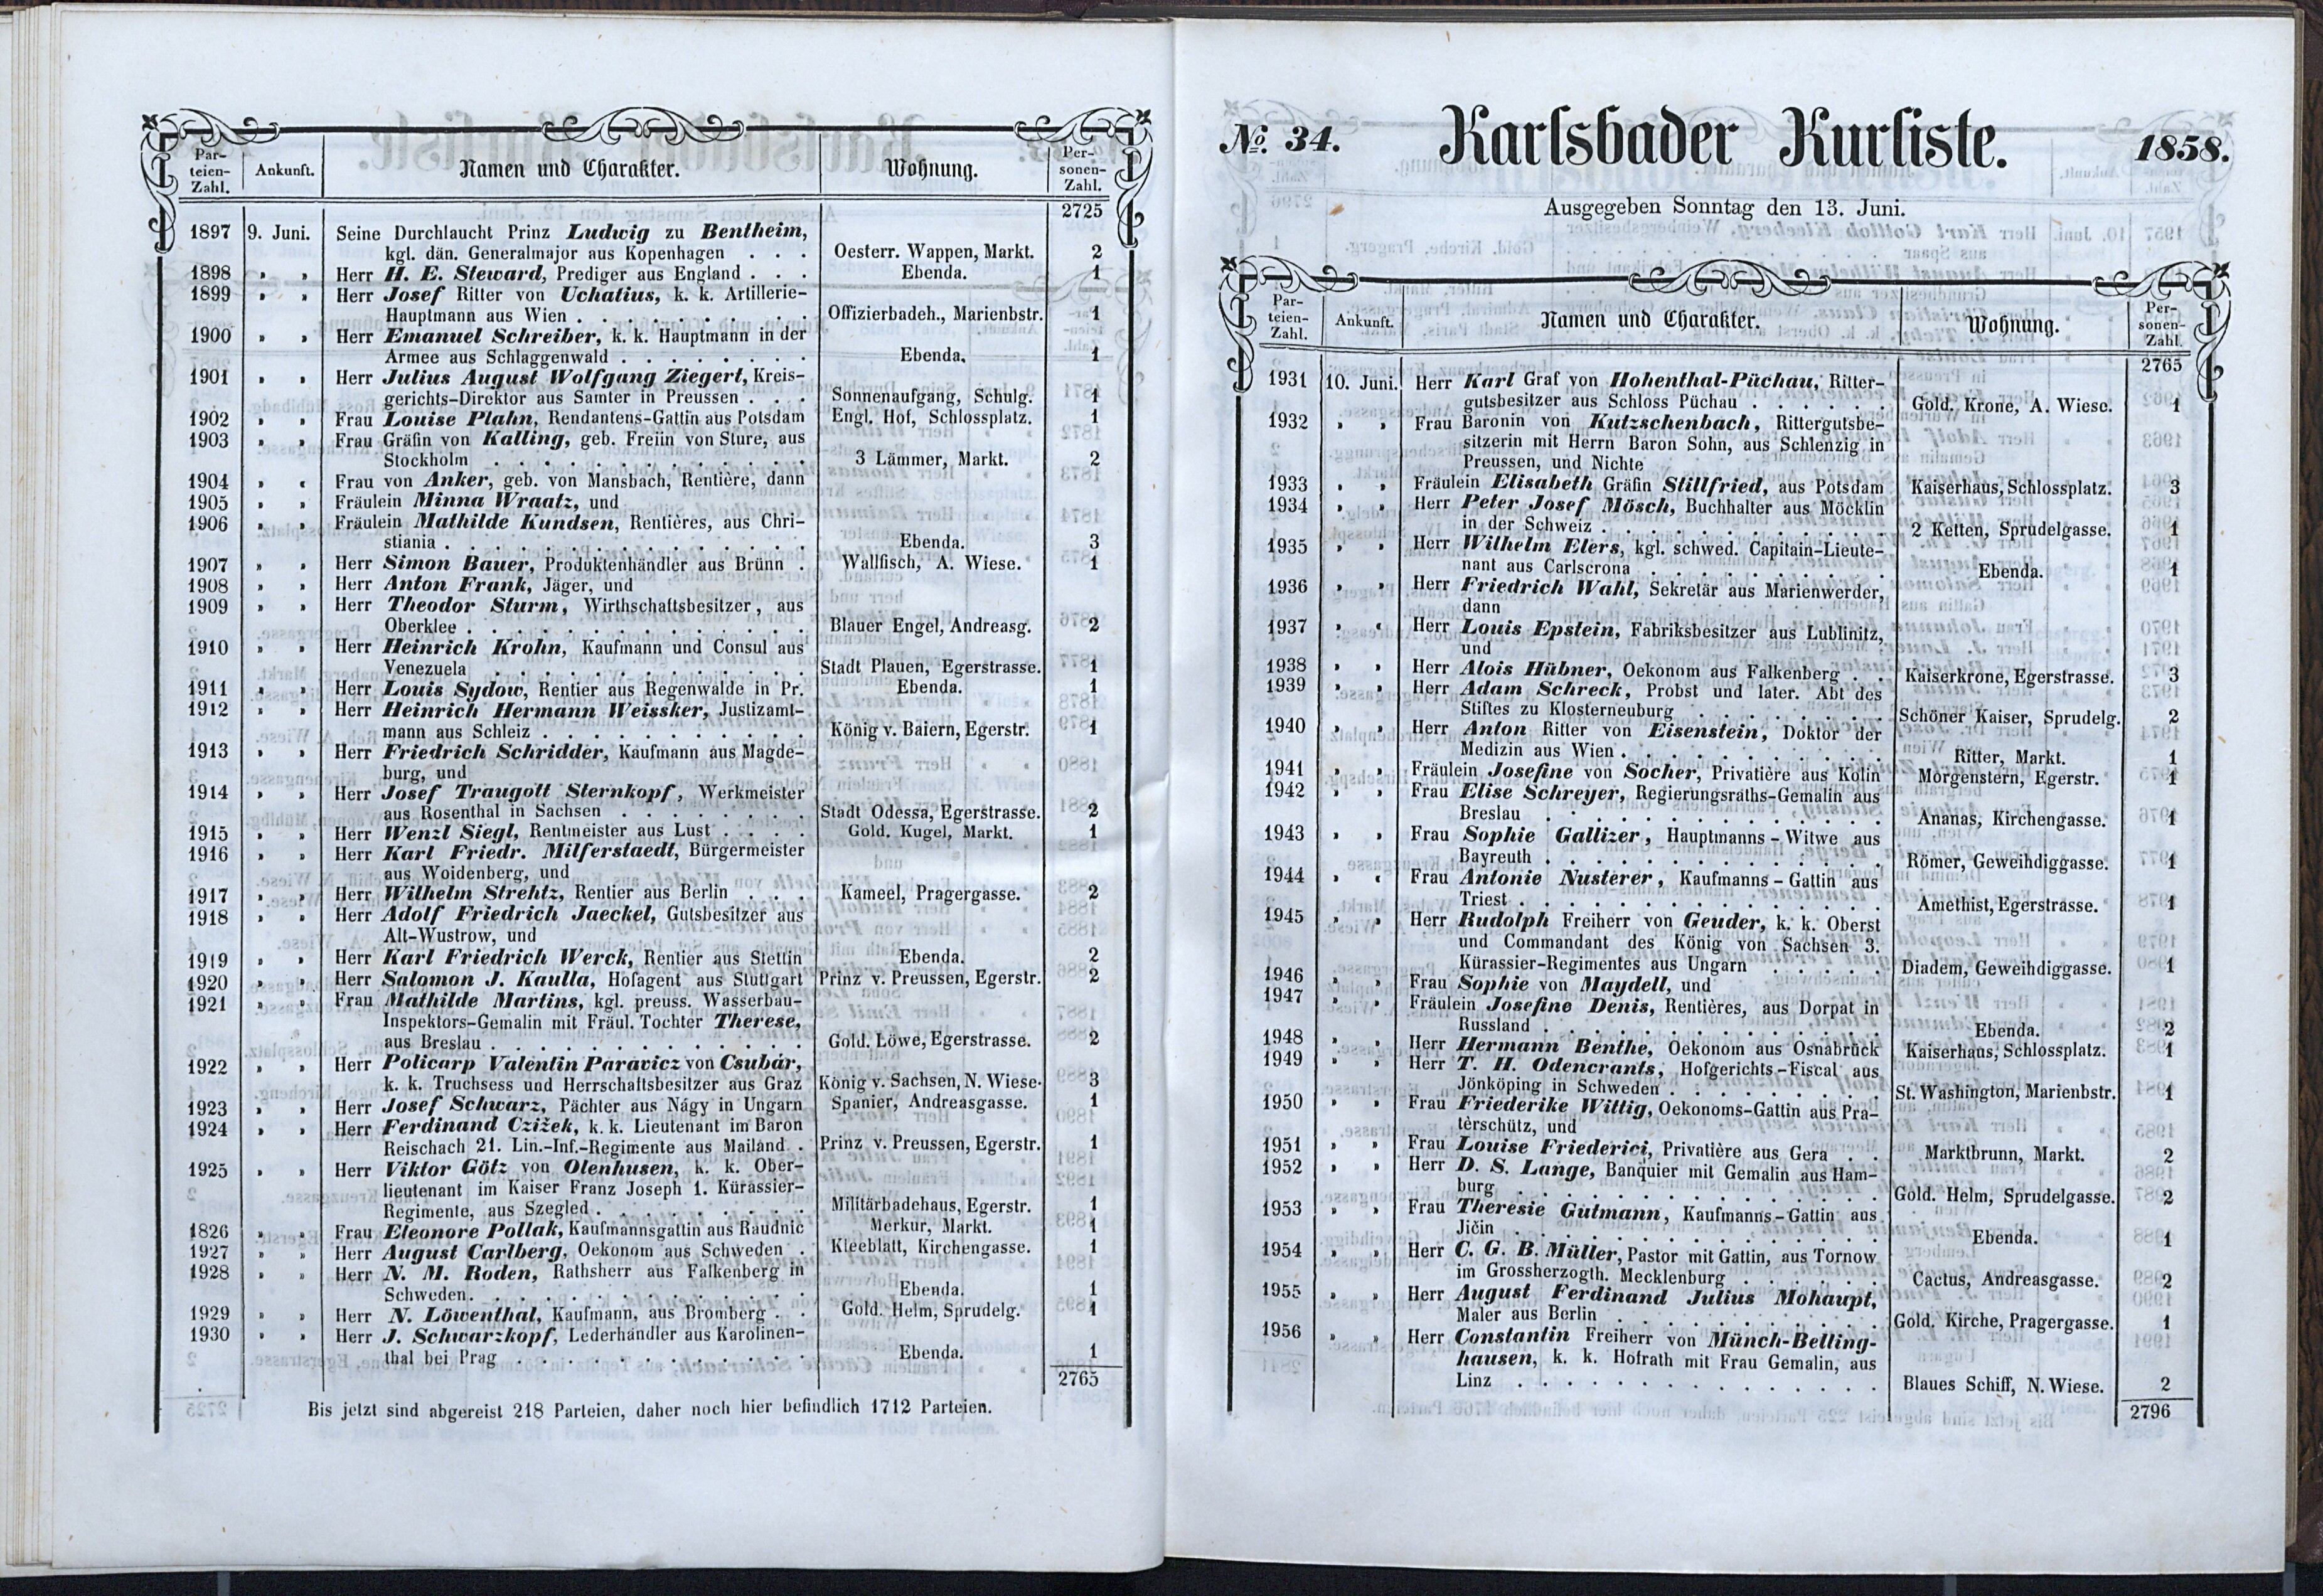 Par-
teien-
Zahl.
Ankunft.
Namen und Charakter.
Wohnung.
Per-
sonen-
Zahl.
2725
1897 9. Juni. Seine Durchlaucht Prinz Ludwig zu Bentheim,
kgl. dän. Generalmajor aus Kopenhagen . . . Oesterr. Wappen, Markt. 2
1898 » » Herr H. E. Steward, Prediger aus England . . . Ebenda. 1
1899 » » Herr Josef Ritter von Uchatius, k. k. Artillerie-
Hauptmann aus Wien . . . . . . . . . . Offizierbadeh., Marienbstr. 1
1900 » » Herr Emanuel Schreiber, k. k. Hauptmann in der
Armee aus Schlaggenwald . . . . . . . . Ebenda. 1
1901 » » Herr Julius August Wolfgang Ziegert, Kreis-
gerichts-Direktor aus Samter in Preussen . . . Sonnenaufgang, Schulg. 1
1902 » » Frau Louise Plahn, Rendantens-Gattin aus Potsdam Engl. Hof, Schlossplatz. 1
1903 » » Frau Gräfin von Kalling, geb. Freiin von Sture, aus
Stockholm . . . . . . . . . . . . . 3 Lämmer, Markt. 2
1904 » « Frau von Anker, geb. von Mansbach, Rentière, dann
1905 » » Fräulein Minna Wraatz, und
1906 » » Fräulein Mathilde Kundsen, Rentières, aus Chri-
stiania . . . . . . . . . . . . . . . Ebenda. 3
1907 » » Herr Simon Bauer, Produktenhändler aus Brünn . Wallfisch, A. Wiese. 1
1908 » » Herr Anton Frank, Jäger, und
1909 » » Herr Theodor Sturm, Wirthschaftsbesitzer, aus
Oberklee . . . . . . . . . . . . . . Blauer Engel, Andreasg. 2
1910 » » Herr Heinrich Krohn, Kaufmann und Consul aus
Venezuela . . . . . . . . . . . . . Stadt Plauen, Egerstrasse. 1
1911 » » Herr Louis Sydow, Rentier aus Regenwalde in Pr. Ebenda. 1
1912 » » Herr Heinrich Hermann Weissker, Justizamt-
mann aus Schleiz . . . . . . . . . . . König v. Baiern, Egerstr. 1
1913 » » Herr Friedrich Schridder, Kaufmann aus Magde-
burg, und
1914 » » Herr Josef Traugott Sternkopf, Werkmeister
aus Rosenthal in Sachsen . . . . . . . . Stadt Odessa, Egerstrasse. 2
1915 » » Herr Wenzl Siegl, Rentmeister aus Lust . . . . Gold. Kugel, Markt. 1
1916 » » Herr Karl Friedr. Milferstaedt, Bürgermeister
aus Woidenberg, und
1917 » » Herr Wilhelm Strehtz, Rentier aus Berlin . . . Kameel, Pragergasse. 2
1918 » » Herr Adolf Friedrich Jaeckel, Gutsbesitzer aus
Alt-Wustrow, und
1919 » » Herr Karl Friedrich Werck, Rentier aus Stettin Ebenda. 2
1920 » » Herr Salomon J. Kaulla, Hofagent aus Stuttgart Prinz v. Preussen, Egerstr. 2
1921 » » Frau Mathilde Martins, kgl. preuss. Wasserbau-
Inspektors-Gemalin mit Fräul. Tochter Therese,
aus Breslau . . . . . . . . . . . . . Gold. Löwe, Egerstrasse. 2
1922 » » Herr Policarp Valentin Paravicz von Csubár,
k. k. Truchsess und Herrschaftsbesitzer aus Graz König v. Sachsen, N. Wiese. 3
1923 » » Herr Josef Schwarz, Pächter aus Nágy in Ungarn Spanier, Andreasgasse. 1
1924 » » Herr Ferdinand Czižek, k. k. Lieutenant im Baron
Reischach 21. Lin.-Inf.-Regimente aus Mailand . Prinz v. Preussen, Egerstr. 1
1925 » » Herr Viktor Götz von Olenhusen, k. k. Ober-
lieutenant im Kaiser Franz Joseph 1. Kürassier-
Regimente, aus Szegled . . . . . . . . . Militärbadehaus, Egerstr. 1
1826 » » Frau Eleonore Pollak, Kaufmannsgattin aus Raudnic Merkur, Markt. 1
1927 » » Herr August Carlberg, Oekonom aus Schweden . Kleeblatt, Kirchengasse. 1
1928 » » Herr N. M. Roden, Rathsherr aus Falkenberg in
Schweden . . . . . . . . . . . . . . Ebenda. 1
1929 » » Herr N. Löwenthal, Kaufmann, aus Bromberg . . Gold. Helm, Sprudelg. 1
1930 » » Herr J. Schwarzkopf, Lederhändler aus Karolinen-
thal bei Prag . . . . . . . . . . . . Ebenda. 1
2765
Bis jetzt sind abgereist 218 Parteien, daher noch hier befindlich 1712 Parteien.
No. 34. Karlsbader Kurliste. 1858.
Ausgegeben Sonntag den 13. Juni.
Par-
teien-
Zahl.
Ankunft.
Namen und Charakter.
Wohnung.
Per-
sonen-
Zahl.
2765
1931 10. Juni. Herr Karl Graf von Hohenthal-Püchau, Ritter-
gutsbesitzer aus Schloss Püchau . . . . . . Gold. Krone, A. Wiese. 1
1932 » » Frau Baronin von Kutzschenbach, Rittergutsbe-
sitzerin mit Herrn Baron Sohn, aus Schlenzig in
Preussen, und Nichte
1933 » » Fräulein Elisabeth Gräfin Stillfried, aus Potsdam Kaiserhaus, Schlossplatz. 3
1934 » » Herr Peter Josef Mösch, Buchhalter aus Möcklin
in der Schweiz . . . . . . . . . . . . 2 Ketten, Sprudelgasse. 1
1935 » » Herr Wilhelm Elers, kgl. schwed. Capitain-Lieute-
nant aus Carlscrona . . . . . . . . . . Ebenda. 1
1936 » » Herr Friedrich Wahl, Sekretär aus Marienwerder,
dann
1937 » « Herr Louis Epstein, Fabriksbesitzer aus Lublinitz,
und
1938 » » Herr Alois Hübner, Oekonom aus Falkenberg . . Kaiserkrone, Egerstrasse. 3
1939 » » Herr Adam Schreck, Probst und later. Abt des
Stiftes zu Klosterneuburg . . . . . . . . Schöner Kaiser, Sprudelg. 2
1940 » » Herr Anton Ritter von Eisenstein, Doktor der
Medizin aus Wien . . . . . . . . . . . Ritter, Markt. 1
1941 » » Fräulein Josefine von Socher, Privatière aus Kolin Morgenstern, Egerstr. 1
1942 » » Frau Elise Schreyer, Regierungsraths-Gemalin aus
Breslau . . . . . . . . . . . . . . Ananas, Kirchengasse. 1
1943 » » Frau Sophie Gallizer, Hauptmanns-Witwe aus
Bayreuth . . . . . . . . . . . . . . Römer, Geweihdiggasse. 1
1944 » « Frau Antonie Nusterer, Kaufmanns-Gattin aus
Triest . . . . . . . . . . . . . . . Amethist, Egerstrasse. 1
1945 » » Herr Rudolph Freiherr von Geuder, k. k. Oberst
und Commandant des König von Sachsen 3.
Kürassier-Regimentes aus Ungarn . . . . . Diadem, Geweihdiggasse. 1
1946 » » Frau Sophie von Maydell, und
1947 » » Fräulein Josefine Denis, Rentières, aus Dorpat in
Russland . . . . . . . . . . . . . . Ebenda. 2
1948 » » Herr Hermann Benthe, Oekonom aus Osnabrück Kaiserhaus, Schlossplatz. 1
1949 » » Herr T. H. Odencrants, Hofgerichts-Fiscal aus
Jönköping in Schweden . . . . . . . . . St. Washington, Marienbstr. 1
1950 » » Frau Friederike Wittig, Oekonoms-Gattin aus Pra-
terschütz, und
1951 » » Frau Louise Friederici, Privatière aus Gera . . Marktbrunn, Markt. 2
1952 » » Herr D. S. Lange, Banquier mit Gemalin aus Ham-
burg . . . . . . . . . . . . . . . Gold. Helm, Sprudelgasse. 2
1953 » » Frau Theresie Gutmann, Kaufmanns-Gattin aus
Jičin . . . . . . . . . . . . . . . Ebenda. 1
1954 » » Herr C. G. B. Müller, Pastor mit Gattin, aus Tornow
im Grossherzogth. Mecklenburg . . . . . . Cactus, Andreasgasse. 2
1955 » » Herr August Ferdinand Julius Mohaupt,
Maler aus Berlin . . . . . . . . . . . Gold. Kirche, Pragergasse. 1
1956 » » Herr Constantin Freiherr von Münch-Belling-
hausen, k. k. Hofrath mit Frau Gemalin, aus
Linz . . . . . . . . . . . . . . . Blaues Schiff, N. Wiese. 2
2796